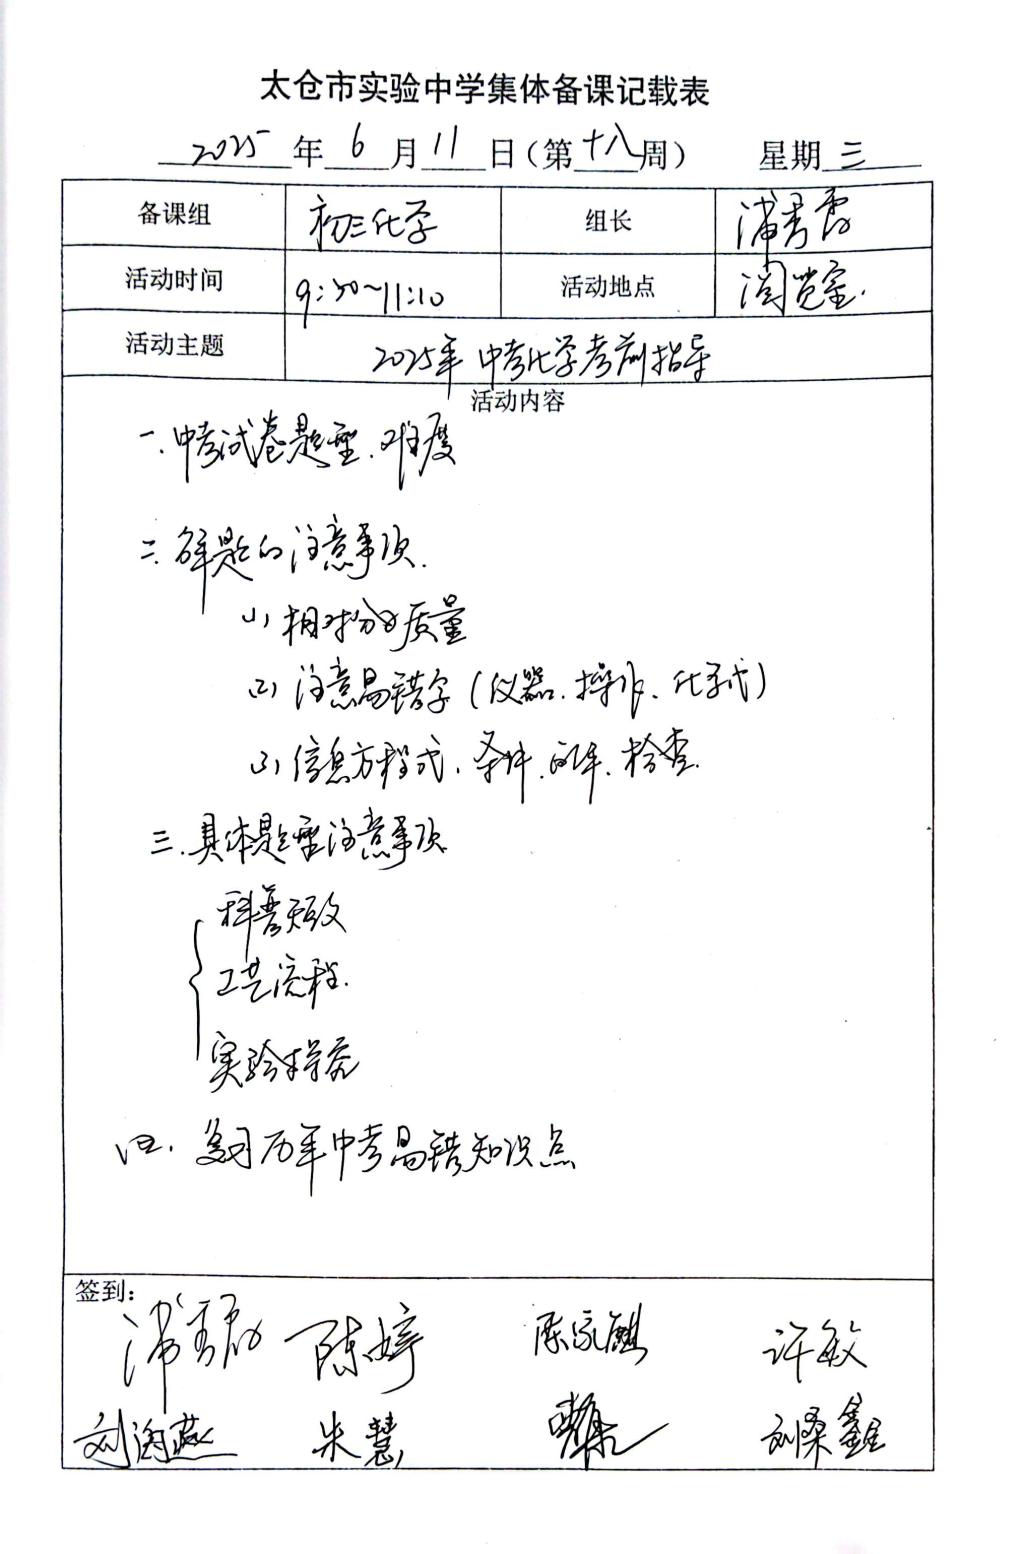 太仓市实验中学集体备课记载表
2025年6月11日（第十八周） 星期三
备课组 初三化学 组长 浦秀
活动时间 9:30~11:10 活动地点 阅览室.
活动主题 2025年中考化学考前指导
活动内容
一.中考试卷题型.难度
二.解题的注意事项.
(1) 相对分子质量
(2) 注意易错字（仪器.操作.化学式）
(3) 信息方程式.条件.配平.检查.
三.具体题型注意事项
科普短文
工艺流程.
实验探究
四.复习历年中考易错知识点
签到：
浦秀 陈婷 陈家麒 许敏
刘海燕 朱慧 刘燊鑫